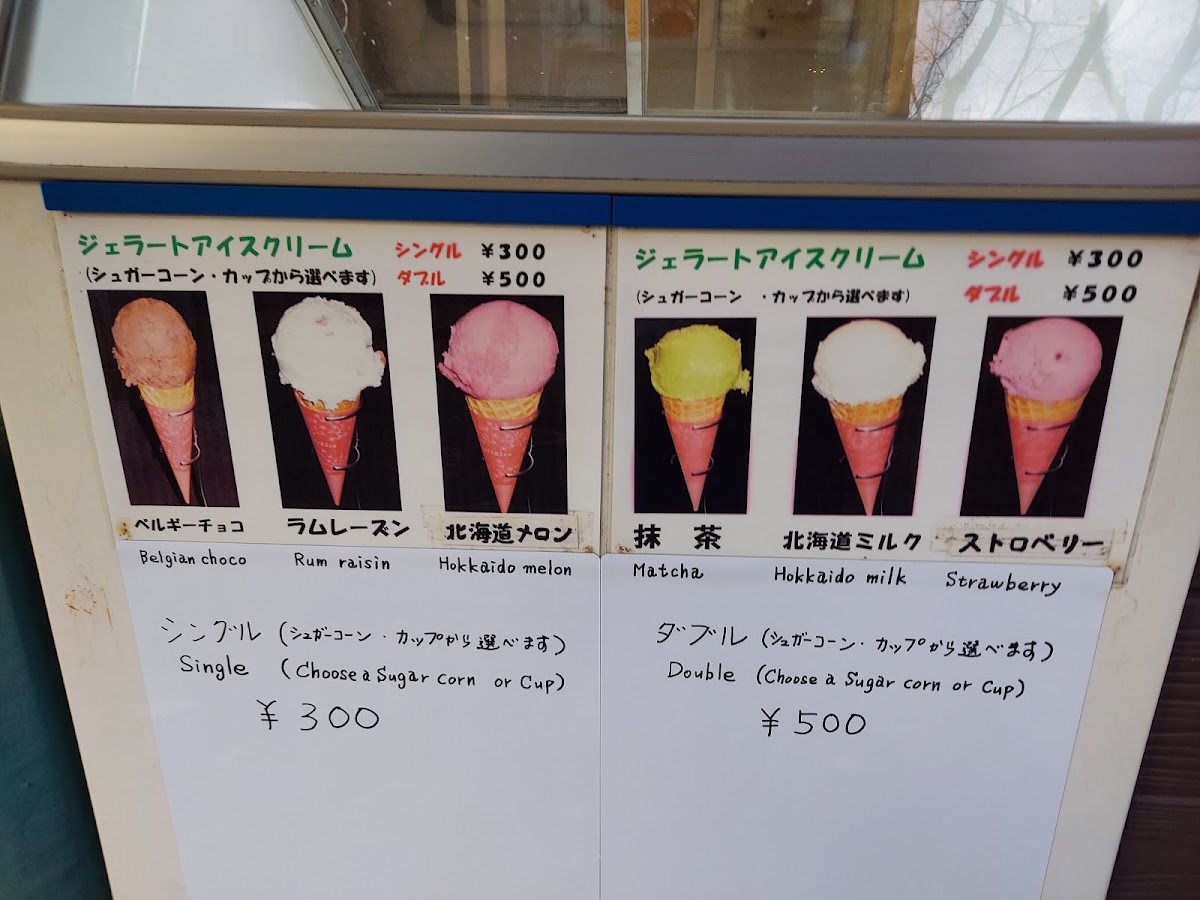 ジェラートアイスクリーム シングル ¥300
(シュガーコーン・カップから選べます) ダブル ¥500
ベルギーチョコ ラムレーズン 北海道メロン
Belgian choco Rum raisin Hokkaido melon
シングル (シュガーコーン・カップから選べます)
Single (Choose a Sugar corn or Cup)
¥300
ジェラートアイスクリーム シングル ¥300
(シュガーコーン ・カップから選べます) ダブル ¥500
抹 茶 北海道ミルク ストロベリー
Matcha Hokkaido milk Strawberry
ダブル (シュガーコーン・カップから選べます)
Double (Choose a Sugar corn or Cup)
¥500